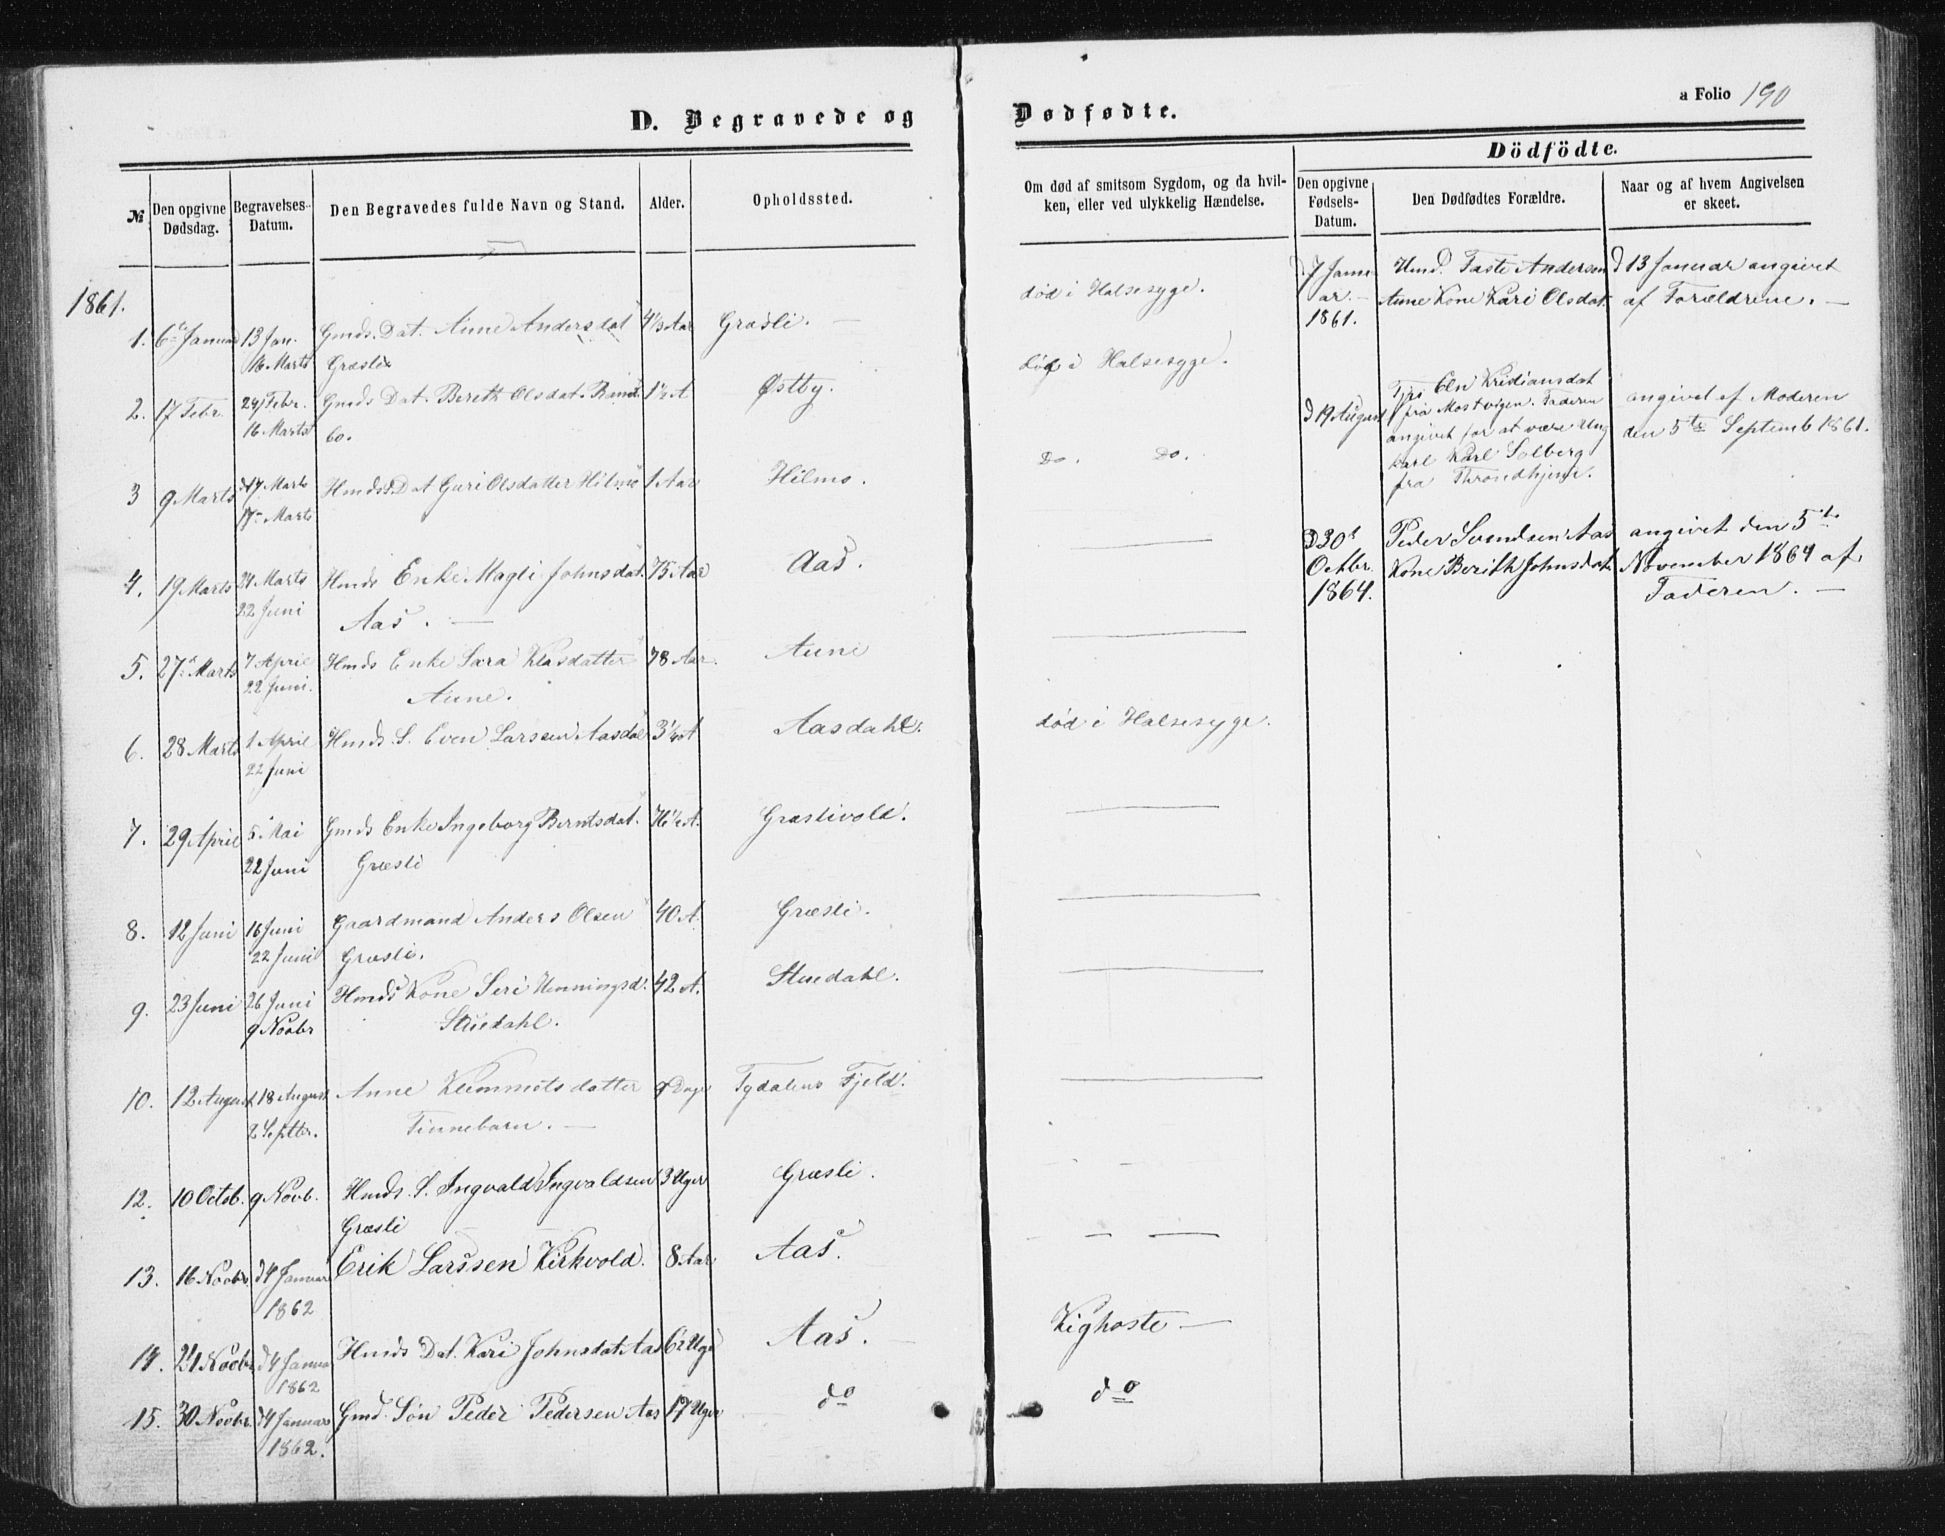 D. Begravede og Dødfødte.
a Folio 190
№
Den opgivne Dødsdag.
Begravelses-Datum.
Den Begravedes fulde Navn og Stand.
Alder.
Opholdssted.
Om død af smitsom Sygdom, og da hvil-
ken, eller ved ulykkelig Hændelse.
Dödfödte.
Den opgivne Fødsels-Datum.
Den Dødfødtes Forældre.
Naar og af hvem Angivelsen er skeet.
1861.
1. 6te Januar 13 Jan. Gmds. Dat. Anne Andersdat 4 1/3 Aar Græsli. — død i Halsesyge.
16 Marts Græsli
2. 17 Febr. 24 Febr. Gmds Dat. Bereth Olsdat. 1 1/2 A Østby. død i Halsesyge.
16 Marts bo.
3 9 Marts 17 Marts Hmds Dat Guri Olsdatter Hilmo 1 Aar Hilmo. Do. Do.
17 Marts
4. 19 Marts 24 Marts Hmds Enke Magli Johnsdat. 75 Aar Aas. —
22 Juni Aas. —
5. 27 Marts 7 April Hmds Enke Sara Klasdatter 78 Aar. Aune —
22 Juni. Aune.
6. 28 Marts 1 April Hmds. S. Even Larssen Aasdal 3 1/2 A Aasdahl. død i Halsesyge.
22 Juni
7. 29 April 5 Mai Gmds Enke Ingeborg Berntsdat. 76 1/2 A. Græslivold. —
22 Juni Græsli
8. 12 Juni 16 Juni Gaardmand Anders Olsen 40 A. Græsli. —
22 Juni Græsli.
9. 23 Juni 26 Juni Hmds Kone Siri Henningsd. 42 A. Stuedahl. —
9 Novbr Stuedahl.
10. 12 August 18 August Anne Klemmetsdatter 9 Dage Tydalens Fjeld. —
2 Septbr. Finnebarn. —
12. 10 Octob. 9 Novb. Hmds. S. Ingvald Ingvaldsen 3 Uger Græsli. — —
Græsli
13. 16 Novbr. d 4 Januar Erik Larssen Kirkvold. 8 Aar Aas. — — —
1862
14. 21 Novbr d 4 Januar Hmds Dat. Kari Johnsdat Aas 6 Uger Aas. — Kighoste —
1862
15. 30 Novbr. d 4 Januar Gmd. Søn Peder Pedersen Aas 17 Uger do do
1862.
d 7 Janu Hmd. Taste Andersen d 13 Januar angivet
ar. — Aune Kone Kari Olsdat. af Forældrene. —
1861.
d 19 August
Olu Kristiansdat
fra Mostvigen. Faderen
angivet for at være Ung
karl Karl Solberg
fra Throndhjem.
angivet af Moderen
den 5te Septemb 1861.
d 30t Peder Svendsen Aas angivet den 5te
Octbr. Kone Berith Johnsdat. November 1864 af
1864. Faderen. —